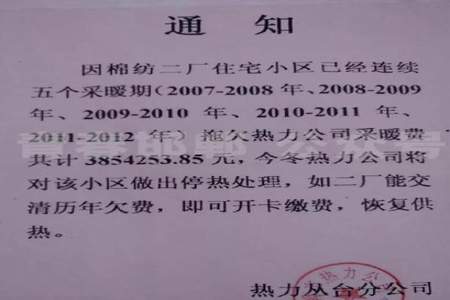 通 知
因棉纺二厂住宅小区已经连续
五个采暖期(2007-2008年、2008-2009
年、2009-2010年、2010-2011年、
2011-2012年)拖欠热力公司采暖费
共计3854253.85元,今冬热力公司将
对该小区做出停热处理,如二厂能交
清历年欠费,即可开卡缴费,恢复供
热。
热力丛台分公司